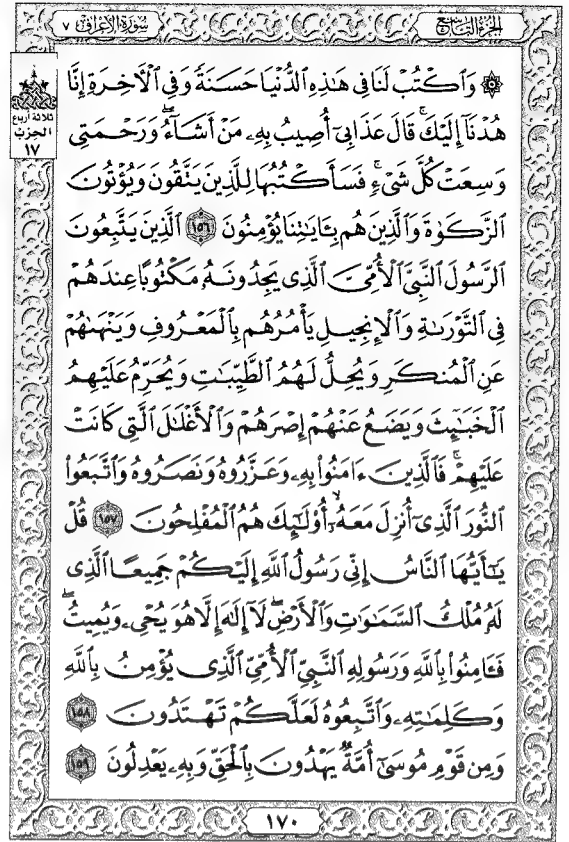 سُورَةُ الأَعْرَاف ٧
الجُزءُ التَّاسِعُ
ثلاثة أرباع
الحزب
١٧
۞ وَٱكۡتُبۡ لَنَا فِي هَٰذِهِ ٱلدُّنۡيَا حَسَنَةٗ وَفِي ٱلۡأٓخِرَةِ إِنَّا
هُدۡنَآ إِلَيۡكَۚ قَالَ عَذَابِيٓ أُصِيبُ بِهِۦ مَنۡ أَشَآءُۖ وَرَحۡمَتِي
وَسِعَتۡ كُلَّ شَيۡءٖۚ فَسَأَكۡتُبُهَا لِلَّذِينَ يَتَّقُونَ وَيُؤۡتُونَ
ٱلزَّكَوٰةَ وَٱلَّذِينَ هُم بِـَٔايَٰتِنَا يُؤۡمِنُونَ ١٥٦ ٱلَّذِينَ يَتَّبِعُونَ
ٱلرَّسُولَ ٱلنَّبِيَّ ٱلۡأُمِّيَّ ٱلَّذِي يَجِدُونَهُۥ مَكۡتُوبًا عِندَهُمۡ
فِي ٱلتَّوۡرَىٰةِ وَٱلۡإِنجِيلِ يَأۡمُرُهُم بِٱلۡمَعۡرُوفِ وَيَنۡهَىٰهُمۡ
عَنِ ٱلۡمُنكَرِ وَيُحِلُّ لَهُمُ ٱلطَّيِّبَٰتِ وَيُحَرِّمُ عَلَيۡهِمُ
ٱلۡخَبَٰٓئِثَ وَيَضَعُ عَنۡهُمۡ إِصۡرَهُمۡ وَٱلۡأَغۡلَٰلَ ٱلَّتِي كَانَتۡ
عَلَيۡهِمۡۚ فَٱلَّذِينَ ءَامَنُواْ بِهِۦ وَعَزَّرُوهُ وَنَصَرُوهُ وَٱتَّبَعُواْ
ٱلنُّورَ ٱلَّذِيٓ أُنزِلَ مَعَهُۥٓ أُوْلَٰٓئِكَ هُمُ ٱلۡمُفۡلِحُونَ ١٥٧ قُلۡ
يَٰٓأَيُّهَا ٱلنَّاسُ إِنِّي رَسُولُ ٱللَّهِ إِلَيۡكُمۡ جَمِيعًا ٱلَّذِي
لَهُۥ مُلۡكُ ٱلسَّمَٰوَٰتِ وَٱلۡأَرۡضِۖ لَآ إِلَٰهَ إِلَّا هُوَ يُحۡيِۦ وَيُمِيتُۖ
فَـَٔامِنُواْ بِٱللَّهِ وَرَسُولِهِ ٱلنَّبِيِّ ٱلۡأُمِّيِّ ٱلَّذِي يُؤۡمِنُ بِٱللَّهِ
وَكَلِمَٰتِهِۦ وَٱتَّبِعُوهُ لَعَلَّكُمۡ تَهۡتَدُونَ ١٥٨
وَمِن قَوۡمِ مُوسَىٰٓ أُمَّةٞ يَهۡدُونَ بِٱلۡحَقِّ وَبِهِۦ يَعۡدِلُونَ ١٥٩
١٧٠